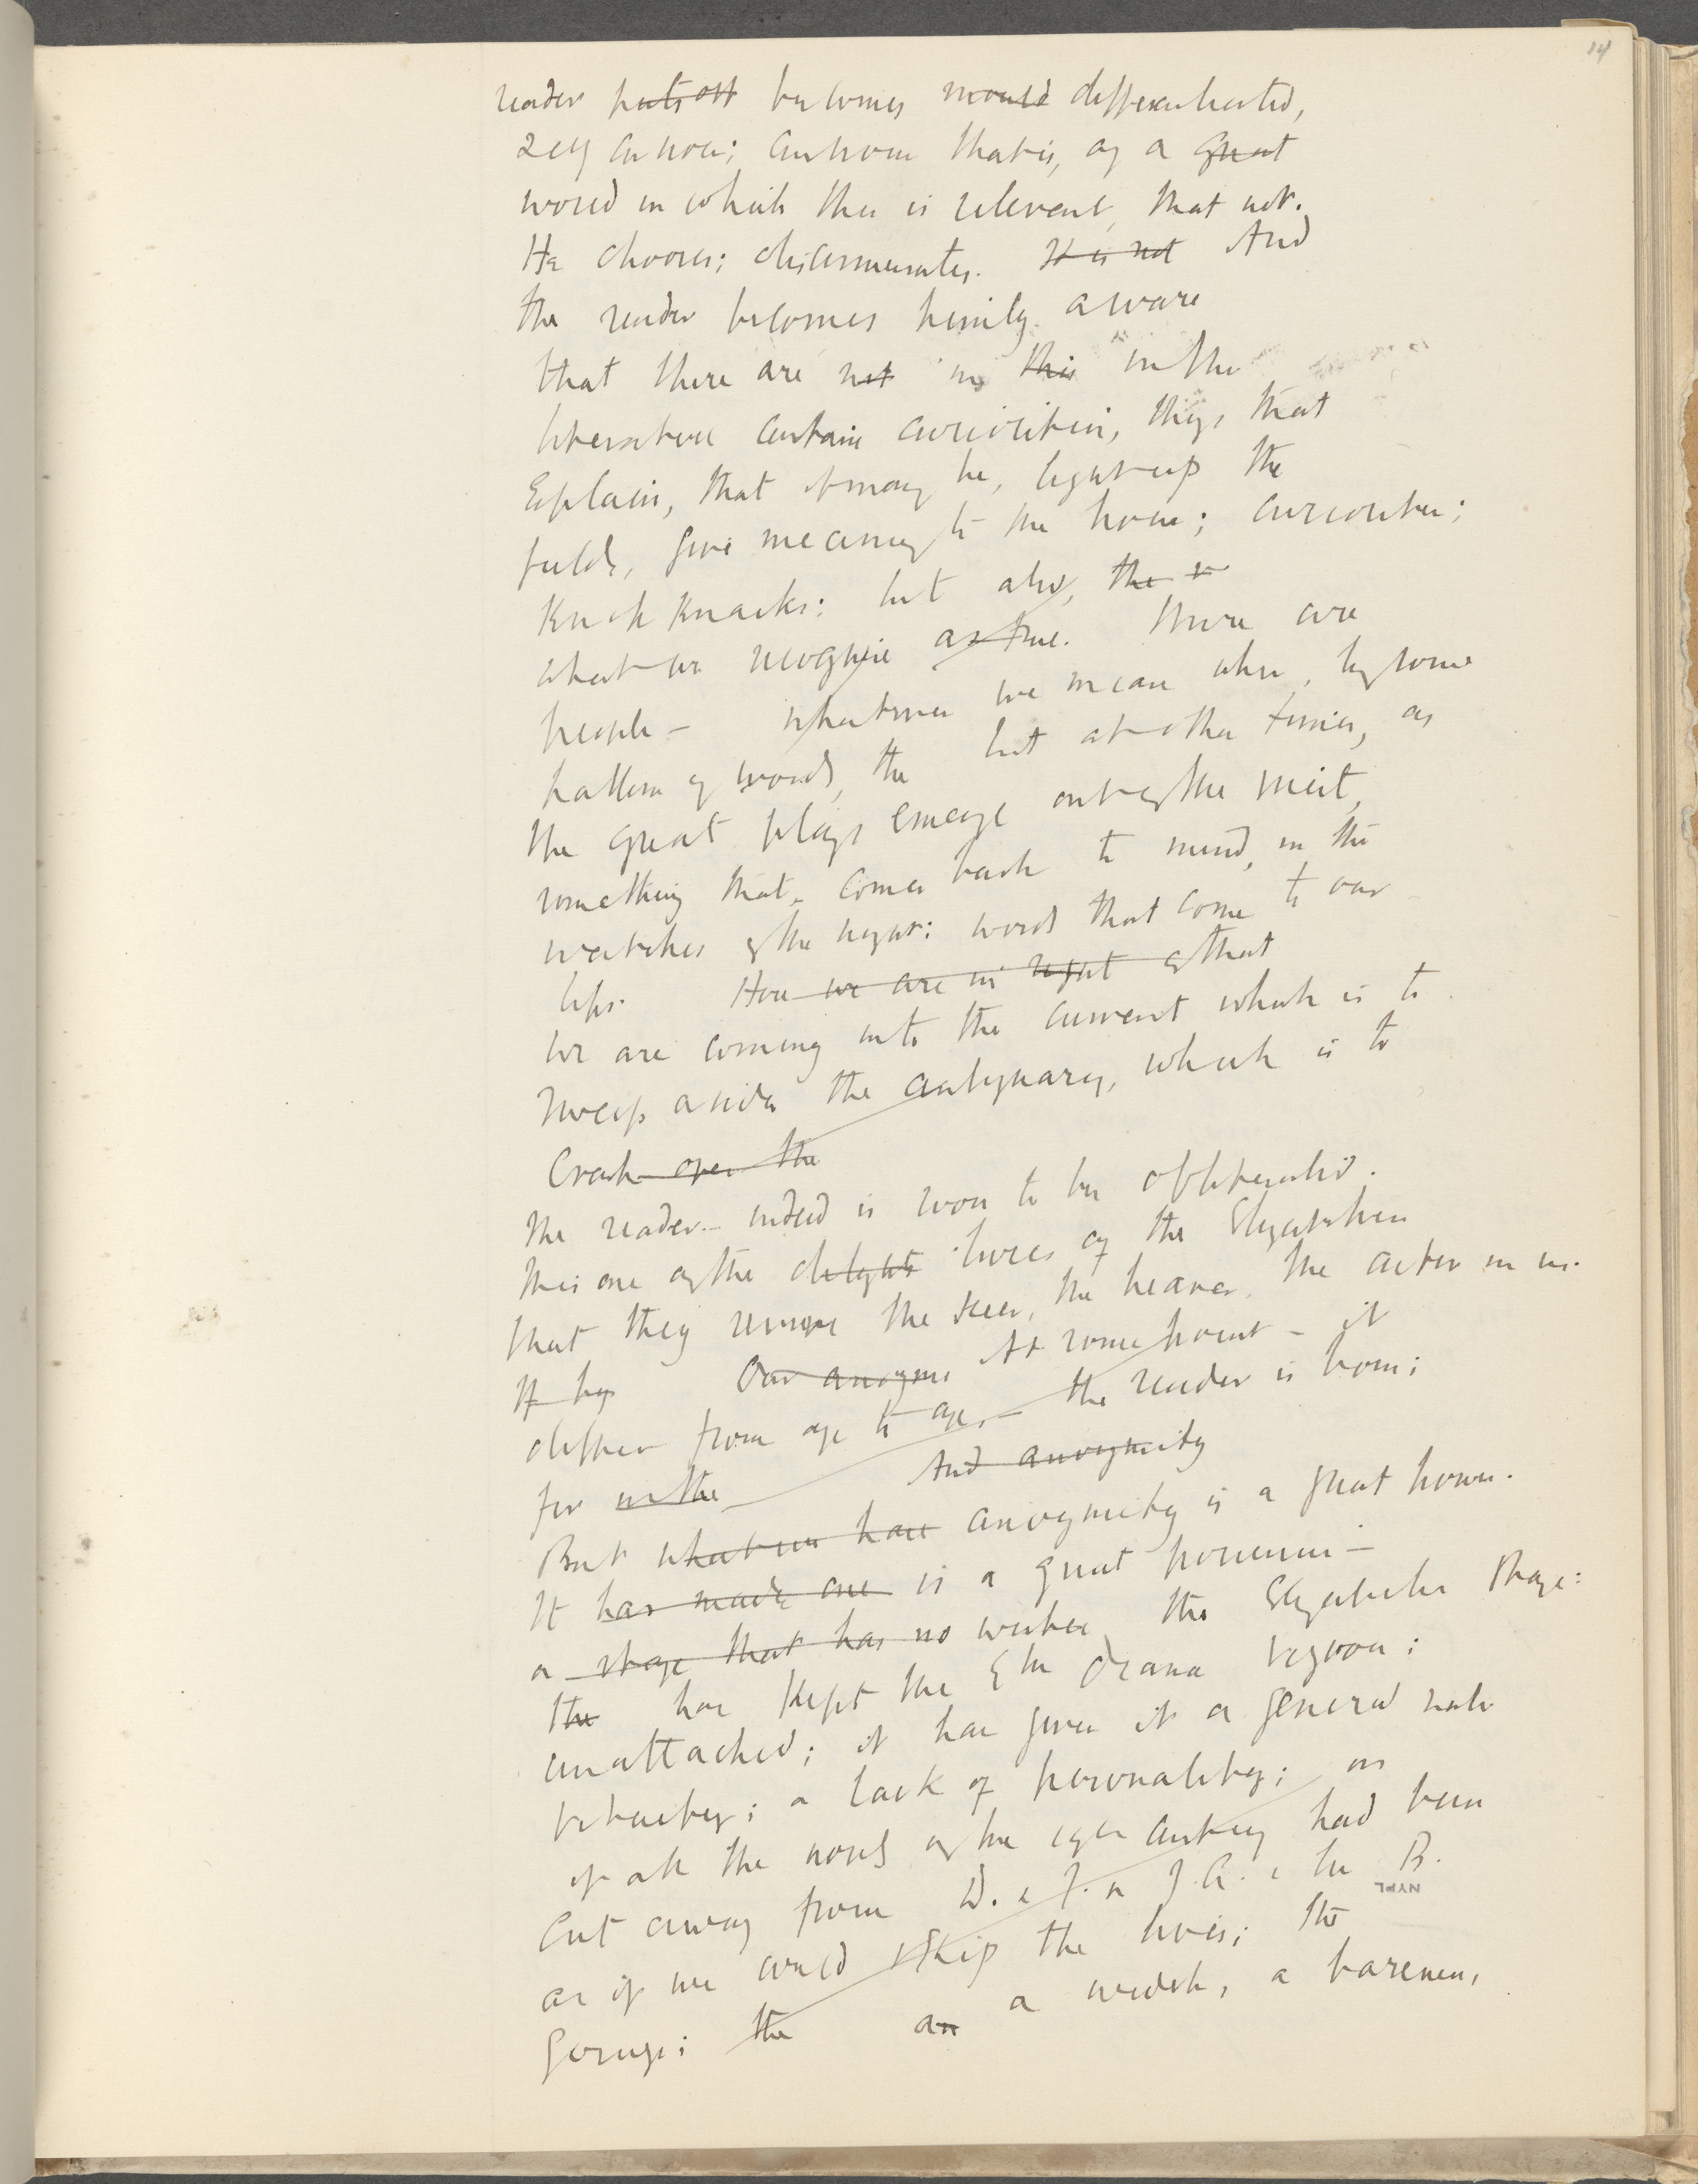 14
reader puts off becomes mould differentiated,
self conscious; that is, of a great
world in which this is relevant, that not.
He chooses; discriminates. It is not And
the reader becomes aware
that there are not in this in the
literature certain curiosities, things that
Explain, that it may be, light up the
fields, give meaning to the house; curiosities;
Knick Knacks: but also, the
what we recognise as true. There are
people – whatever we mean when, by some
pattern of words, the but at other times, as
the great plays emerge out of the mist,
something that comes back to mind, in the
watches of the night: words that come to our
lips. How we are in sight of that
We are coming into the current which is to
sweep aside the antiquary, which is to
Crash over the
the reader – indeed is soon to be obliterated.
this one of the delights lures of the Elizabethan
that they the seer, the hearer, the actor in us.
If by Our anonym At some point – it
differs from age to age, – the reader is born;
for in the And anonymity
But what we have anonymity is a great power.
It has made one is a great possession –
a stage that has no writer the Elizabethan Stage:
the has kept the Eth drama vigorous;
unattached; it has given it a general
vitality; a lack of personality; as
if all the novels of the century had been
cut away from D. & J. A. & the B.
as if we could skip the lives; the
gossip; the an a width, a bareness,
NYPL